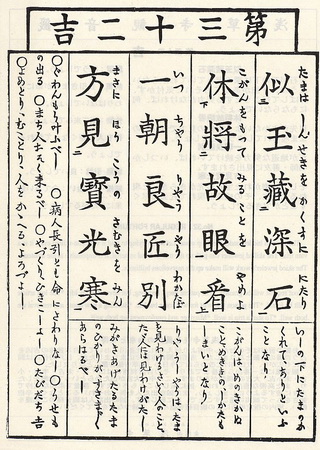 第三十二吉
たまは しんせきを かくすに にたり
似玉藏深石
三 二 一
いしの下にたまのか
くれて、ありといふ
ことなり、
こがんをもつて みる ことを やめよ
休將故眼看
下 二 一 上
こがんは、めのきかぬ
ことめききのしかたも
しまいとなり
いつ ちやう りやうしやう わかたば
一朝良匠別
りやうしやうは、たま
を見わけるさいく人のこと、
たゞ人は見わけがたし
まさに ほう くわうの さむきを みん
方見寶光寒
二 一
みがきあげたるたま
のひかりが、すさまじく
○ぐわんもう叶ふべし ○病人長引とも命にさわりなし ○うせも
の出る ○まち人おそく来るべし ○やづくり、ひきこしよし ○たびだち吉
○よめとり、むことり、人をかゝへる、よろづよし